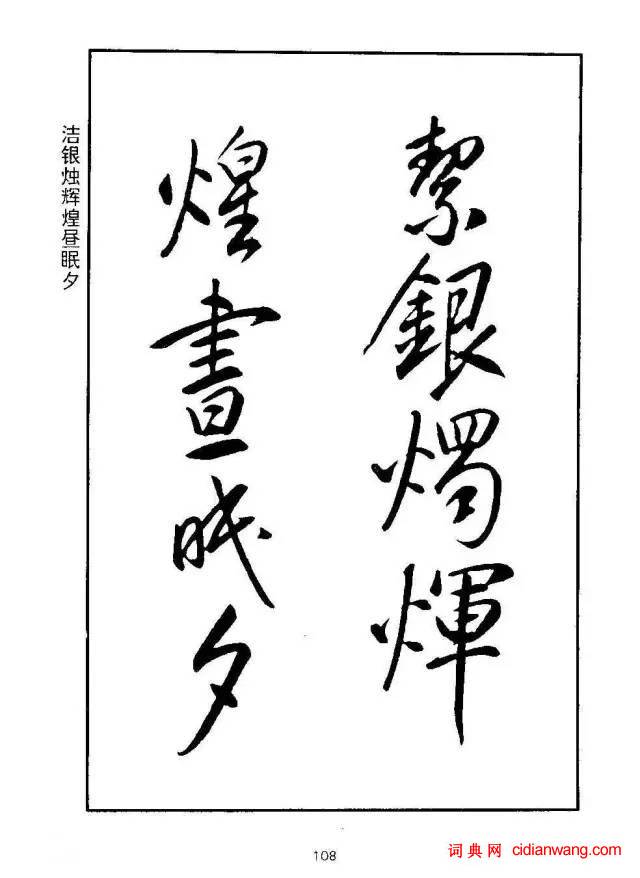 絜銀燭煇
煌晝眠夕
洁银烛辉煌昼眠夕
108
词典网 cidianwang.com